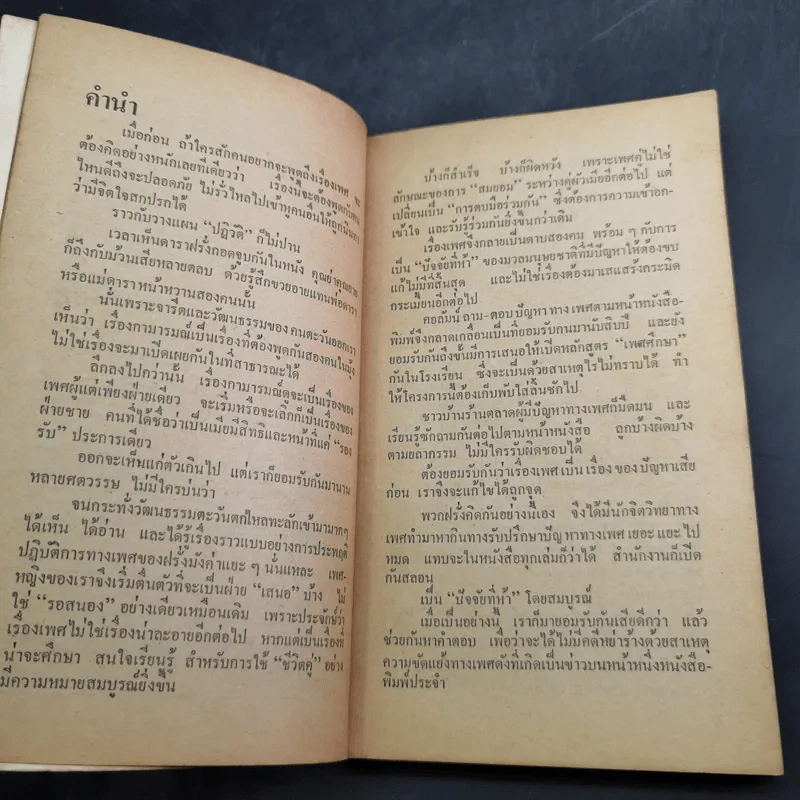 คำนำ
เมื่อก่อน ถ้าใครสักคนอยากจะพูดถึงเรื่องเพศ จะ
ต้องคิดอย่างหนักเลยทีเดียวว่า เรื่องนี้จะต้องพูดกับคน
ไหนดีถึงจะปลอดภัย ไม่รั่วไหลไปเข้าหูคนอื่นให้ถูกนินทา
ว่ามีจิตใจสกปรกได้
ราวกับวางแผน “ปฏิวัติ” ก็ไม่ปาน
เวลาเห็นดาราฝรั่งกอดจูบกันในหนัง คุณย่าคุณยาย
ก็ถึงกับม้วนเสียหลายตลบ ด้วยรู้สึกขวยอายแทนพ่อดารา
หรือแม่ดาราหน้าหวานสองคนนั้น
นั้นเพราะจารีตและวัฒนธรรมของคนตะวันออกเรา
เห็นว่า เรื่องกามารมณ์เป็นเรื่องที่ต้องพูดกันสองคนในมุ้ง
ไม่ใช่เรื่องจะมาเปิดเผยกันในที่สาธารณะได้
ลึกลงไปกว่านั้น เรื่องกามารมณ์ดูจะเป็นเรื่องของ
เพศผู้แต่เพียงฝ่ายเดียว จะเริ่มหรือจะเลิกก็เป็นเรื่องของ
ฝ่ายชาย คนที่ได้ชื่อว่าเป็นเมียมีสิทธิและหน้าที่แค่ “รอง
รับ” ประการเดียว
ออกจะเห็นแก่ตัวเกินไป แต่เราก็ยอมรับกันมานาน
หลายศตวรรษ ไม่มีใครบ่นว่า
จนกระทั่งวัฒนธรรมตะวันตกไหลทะลักเข้ามามากๆ
ได้เห็น ได้อ่าน และได้รู้เรื่องราวแบบอย่างการประพฤติ
ปฏิบัติการทางเพศของฝรั่งมังค่าแยะ ๆ นั่นแหละ เพศ-
หญิงของเราจึงเริ่มตื่นตัวที่จะเป็นฝ่าย “เสนอ” บ้าง ไม่
ใช่ “รอสนอง” อย่างเดียวเหมือนเดิม เพราะประจักษ์ว่า
เรื่องเพศไม่ใช่เรื่องน่าละอายอีกต่อไป หากแต่เป็นเรื่องที่
น่าจะศึกษา สนใจเรียนรู้ สำหรับการใช้ “ชีวิตคู่” อย่าง
มีความหมายสมบูรณ์ยิ่งขึ้น
บ้างก็สำเร็จ บ้างก็ผิดหวัง เพราะเพศคู่ไม่ใช่
ลักษณะของการ “สมยอม” ระหว่างคู่ผัวเมียอีกต่อไป แต่
เปลี่ยนเป็น “การตบมือร่วมกัน” ซึ่งต้องการความเข้าอก-
เข้าใจ และรับรู้ร่วมกันยิ่งขึ้นกว่าเดิม
เรื่องเพศจึงกลายเป็นดาบสองคม พร้อม ๆ กับการ
เป็น “ปัจจัยที่ห้า” ของมวลมนุษยชาติที่มีปัญหาให้ต้องขบ
แก้ไม่มีที่สิ้นสุด และไม่ใช่เรื่องต้องมาเสแสร้งกระมิด
กระเมี้ยนอีกต่อไป
คอลัมน์ ถาม-ตอบ ปัญหา ทาง เพศตามหน้าหนังสือ-
พิมพ์จึงกลาดเกลื่อนเป็นที่ยอมรับกันมานับสิบปี และยัง
ยอมรับกันถึงขั้นมีการเสนอให้เปิดหลักสูตร “เพศศึกษา”
กันในโรงเรียน ซึ่งจะเป็นด้วยสาเหตุไรไม่ทราบได้ ทำ
ให้โครงการนี้ต้องเก็บพับใส่ลิ้นชักไป
ชาวบ้านร้านตลาดผู้มีปัญหาทางเพศก็มืดมน และ
เรียนรู้ซักถามกันต่อไปตามหน้าหนังสือ ถูกบ้างผิดบ้าง
ตามยถากรรม ไม่มีใครรับผิดชอบได้
ต้องยอมรับกันว่าเรื่องเพศ เป็น เรื่อง ของ ปัญหาเสีย
ก่อน เราจึงจะแก้ไขได้ถูกจุด
พวกฝรั่งคิดกันอย่างนี้เอง จึงได้มีนักจิตวิทยาทาง
เพศทำมาหากินทางรับปรึกษาปัญหาทางเพศ เยอะ แยะ ไป
หมด แทบจะในหนังสือทุกเล่มก็ว่าได้ สำนักงานก็เปิด
กันสลอน
เป็น “ปัจจัยที่ห้า” โดยสมบูรณ์
เมื่อเป็นอย่างนี้ เราก็มายอมรับกันเสียดีกว่า แล้ว
ช่วยกันหาคำตอบ เพื่อว่าจะได้ไม่มีคดีหย่าร้างด้วยสาเหตุ
ความขัดแย้งทางเพศดังที่เกิดเป็นข่าวบนหน้าหนึ่งหนังสือ-
พิมพ์ประจำ